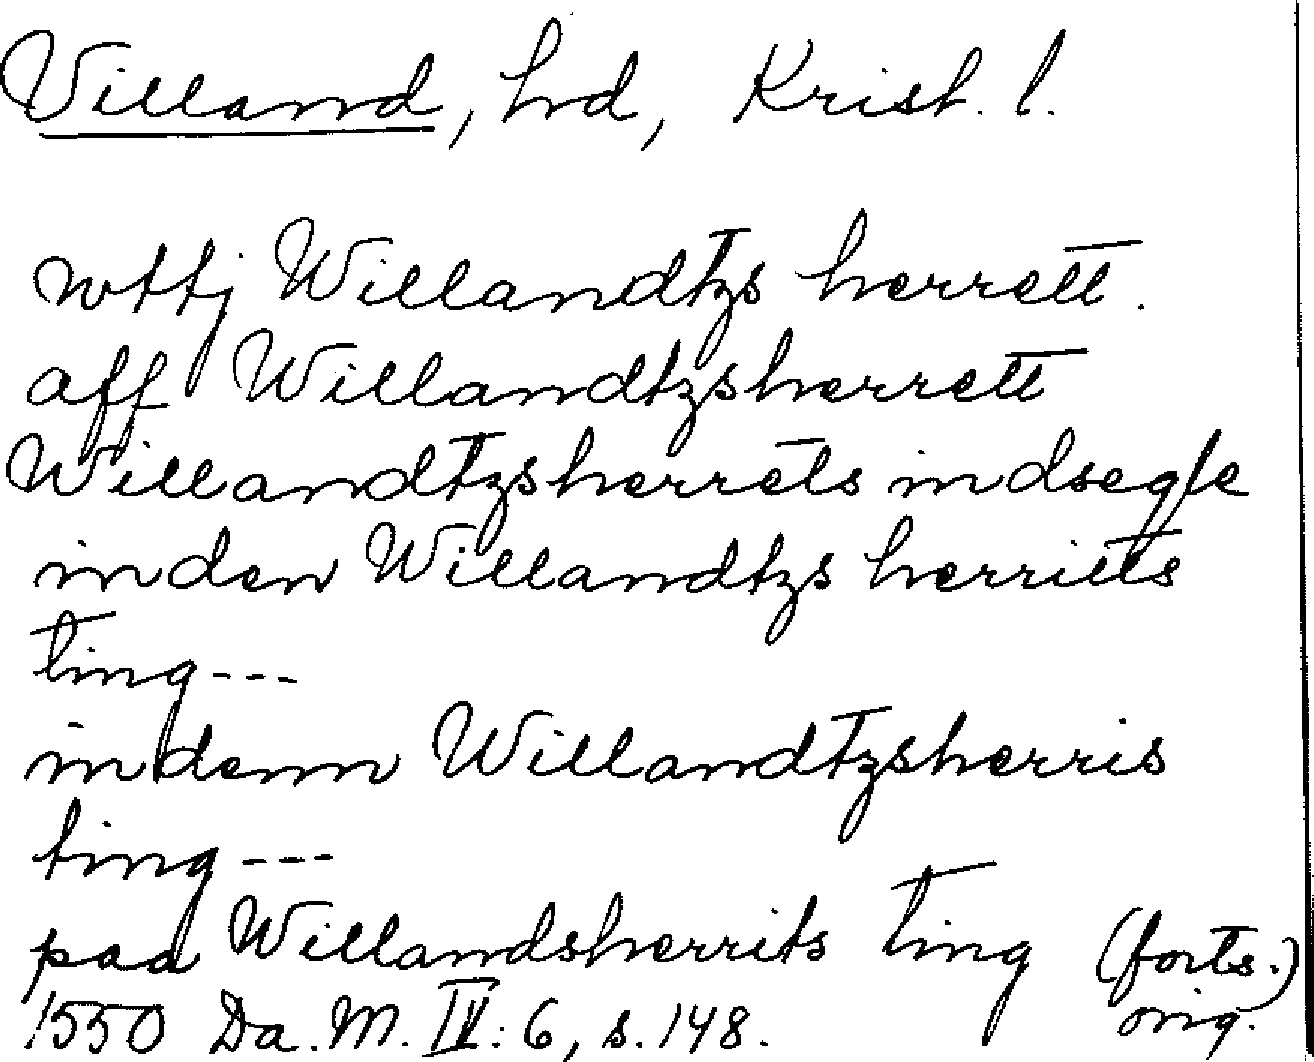 Villand, hd, Krist. l.
wttj Willandtzs herrett.
aff Willandtzsherrett
Willandtzsherrets indsegle
inden Willandtzs herriets
ting---
indenn Willandtzsherris
ting---
paa Willandsherrits ting (forts.)
1550 Da. M. IV: 6, s. 148. orig.